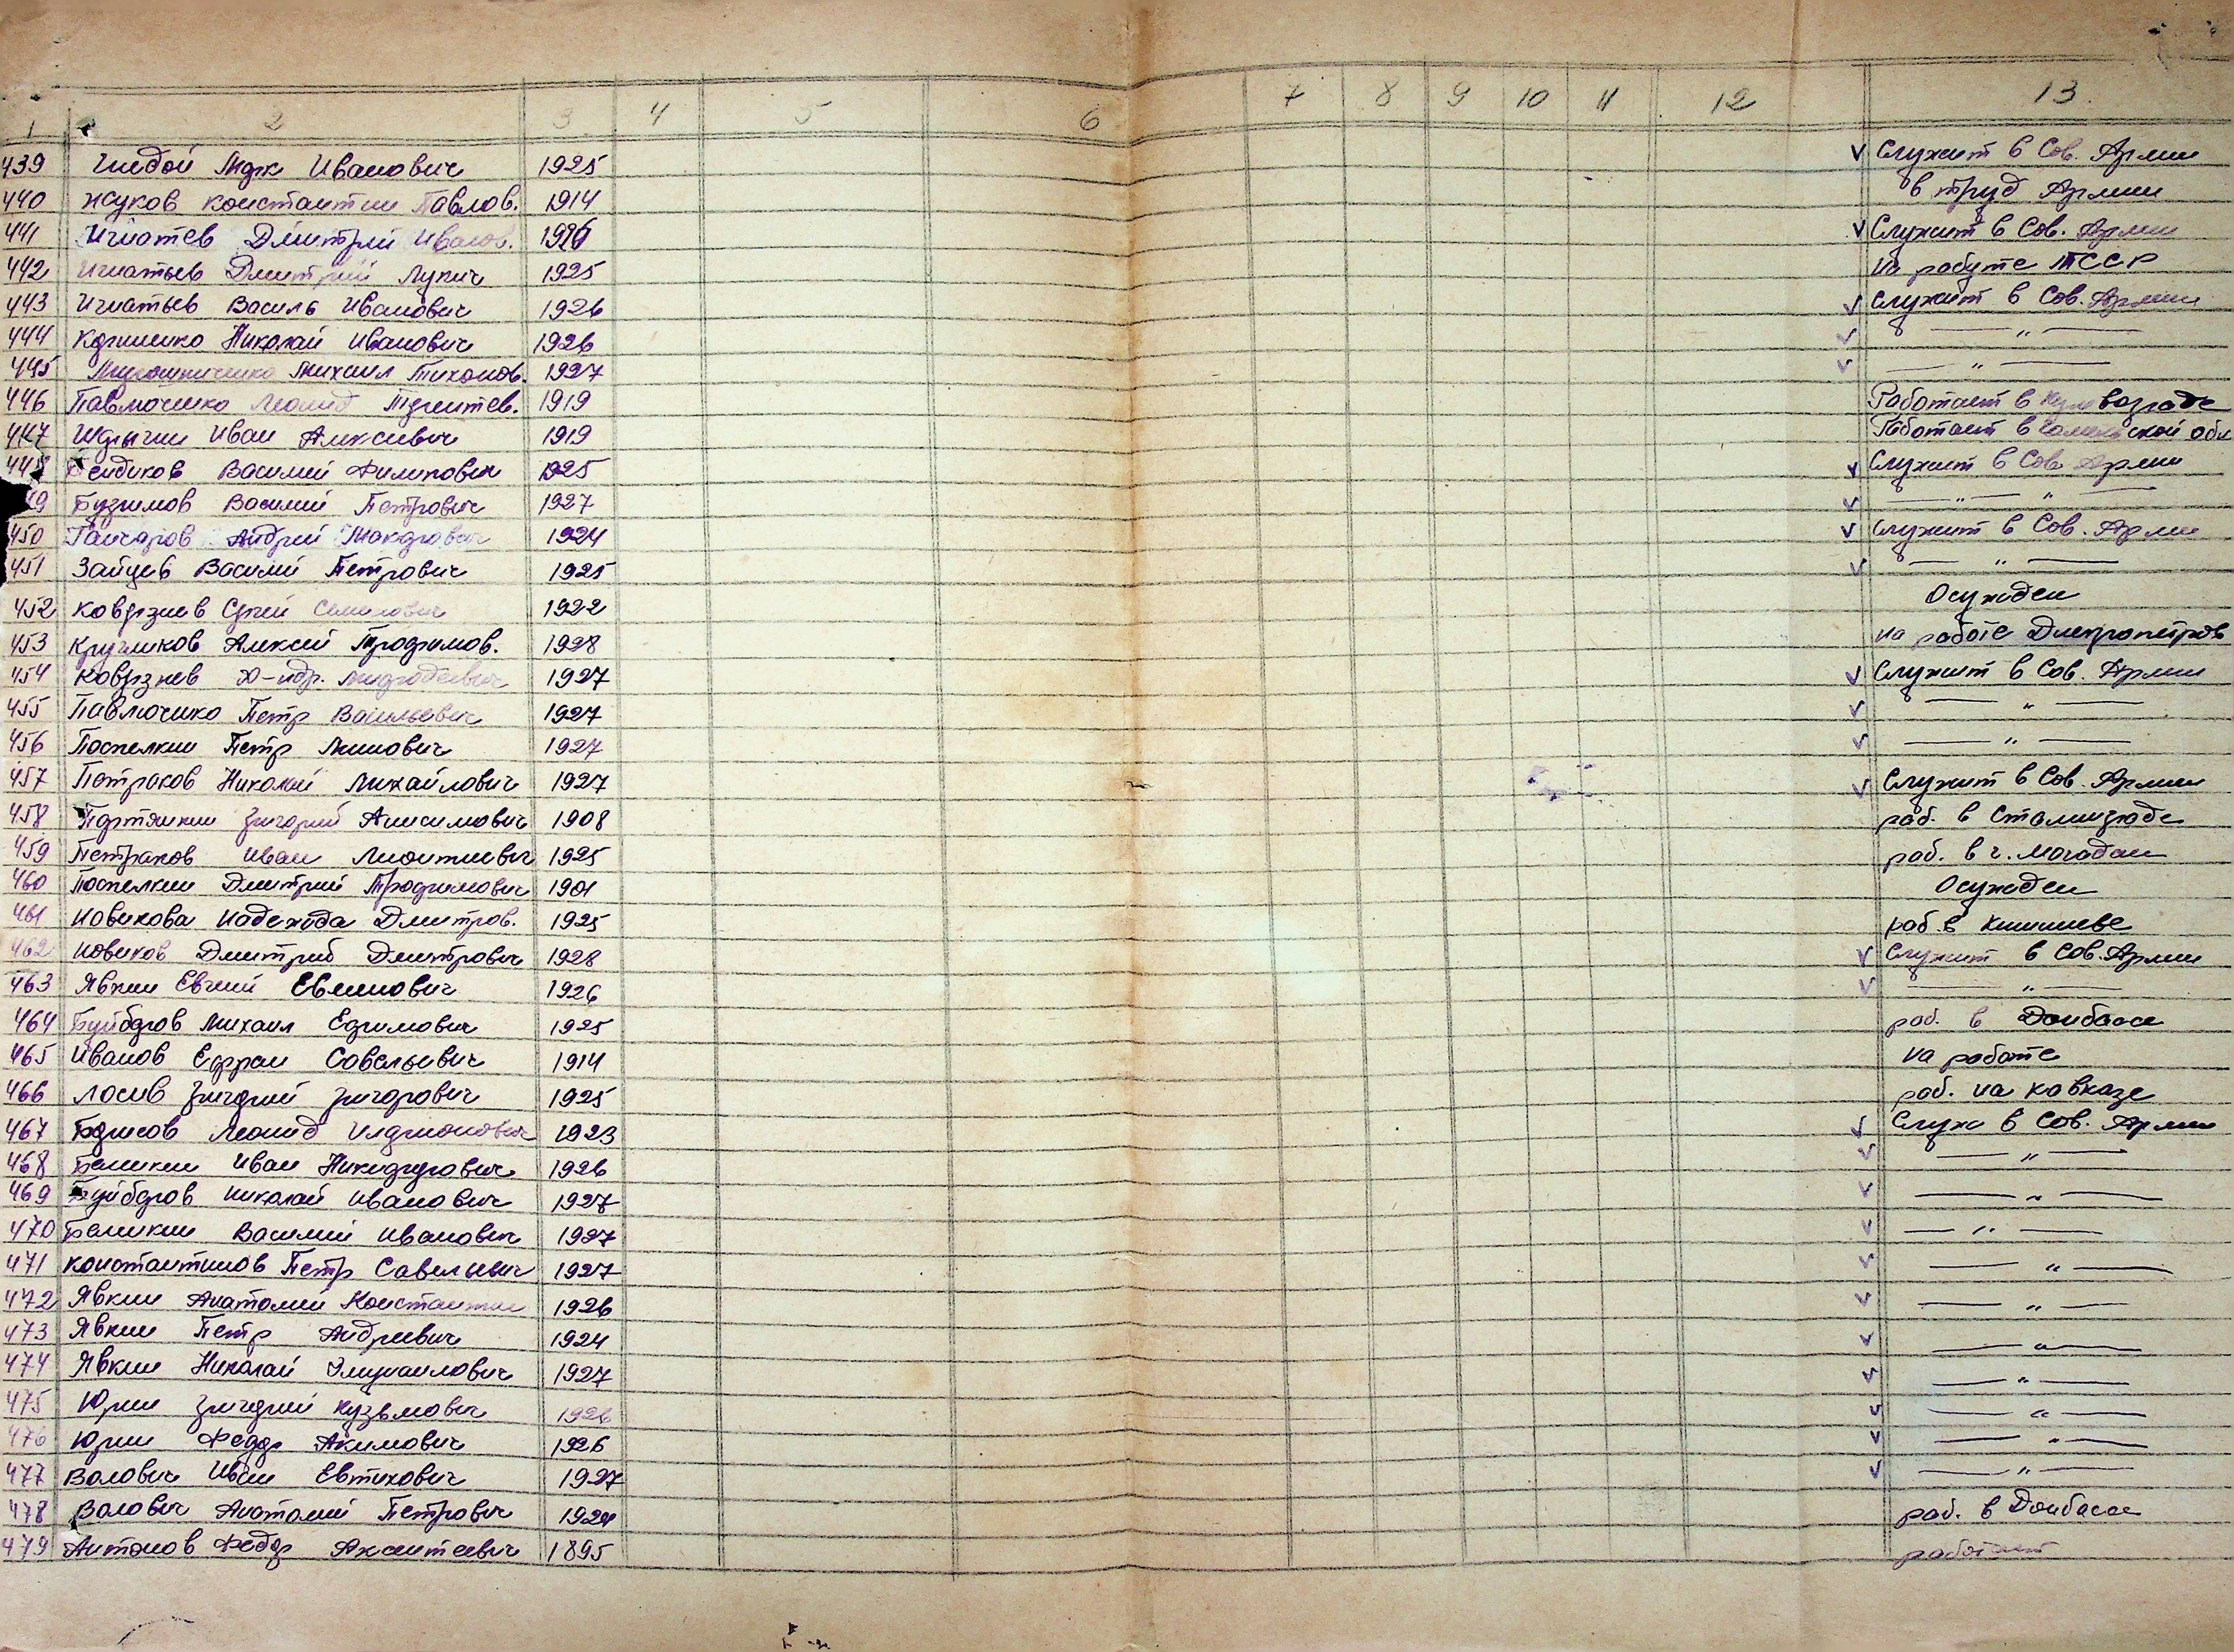 1 2 3 4 5 6 7 8 9 10 11 12 13.
439 Иванович 1925 V Служит в Сов. Армии
440 Жуков Константин Павлов. 1914 в труд Армии
441 Игнатев Дмитрий Иванов. 1926 V Служит в Сов. Армии
442 Игнатьев Дмитрий Лупич 1925 на работе
443 Игнатьев Василь Иванович 1926 V Служит в Сов. Армии
444 Корниенко Николай Иванович 1926 V — " —
445 Михаил Тихонов. 1927 V — " —
446 Павлюченко Леонид 1919 Работает в
447 Иван Алексеевич 1919 Работает в обл
448 Василий Филипович 1925 V Служит в Сов Армии
49 Василий Петрович 1927 V — " — " —
450 Ганчаров Андрей Макарович 1924 V Служит в Сов. Арми
451 Зайцев Василий Петрович 1925 V — " —
452 Ковярзнев Сергей Семенович 1922 Осужден
453 Кругликов Алексей Трофимов. 1928 на работе Днепропетров
454 Ковярзнев 1927 V Служит в Сов. Армии
455 Павлючико Петр Васильевич 1927 V — " —
456 Поспелкин Петр Минович 1927 V — " —
457 Петраков Николай Михайлович 1927 V Служит в Сов. Армии
458 Портянкин Григорий Анисимович 1908 раб. в Сталинграде
459 Петраков Иван Леонтиевич 1925 раб. в г. Магадан
460 Поспелкин Дмитрий Трофимович 1901 Осужден
461 Новикова Надежда Дмитров. 1925 раб. в Кишиневе
462 Новиков Дмитрий Дмитрович 1928 V Служит в Сов. Армии
463 Явкин Евгений Евменович 1926 V — " —
464 Буйборов Михаил Ефимович 1925 раб. в Донбасе
465 Иванов Ефрем Савельевич 1914 на работе
466 Лосив Григорий Григорович 1925 раб. на Кавказе
467 Борисов Леонид Иларионович 1923 V Служ в Сов. Армии
468 Беликин Иван Никифорович 1926 V — " —
469 Буйборов Николай Иванович 1927 V — " —
470 Беликин Василий Иванович 1927 V — " —
471 Константинов Петр Савельевич 1927 V — " —
472 Явкин Анатолий Константин 1926 V — " —
473 Явкин Петр Андреевич 1924 V — " —
474 Явкин Николай 1927 V — " —
475 Юрин Григорий Кузьмович 1926 V — " —
476 Юрин Федор Акимович 1926 V — " —
477 Волович Иван Евтихович 1927 V — " —
478 Волович Анатолий Петрович 1924 раб. в Донбасе
479 Антонов Федор 1895 работает